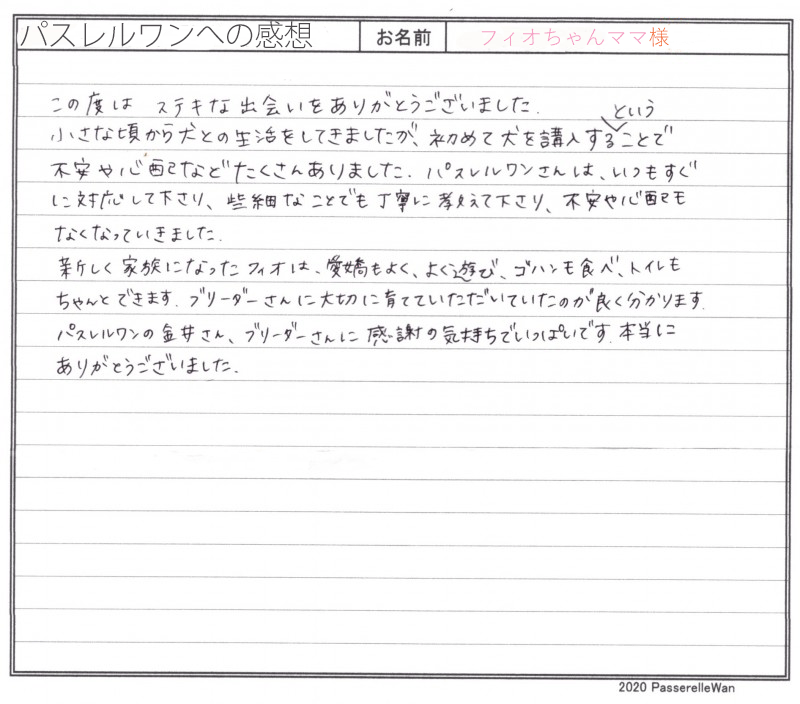 パスレルワンへの感想 お名前 フィオちゃんママ様
この度は ステキな出会いをありがとうございました.
という
小さな頃から犬との生活をしてきましたが、初めて犬を講入することで
不安や心配などたくさんありました. パスレルワンさんは、いつもすぐ
に対応して下さり、些細なことでも丁寧に教えて下さり、不安や心配も
なくなっていきました.
新しく家族になったフィオは、愛嬌もよく、よく遊び、ゴハンも食べ、トイレも
ちゃんとできます. ブリーダーさんに大切に育てていただいていたのが良く分かります.
パスレルワンの金井さん、ブリーダーさんに感謝の気持ちでいっぱいです. 本当に
ありがとうございました.
2020 PasserelleWan